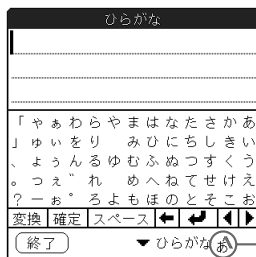 ひらがな
「 ゃ ぁ わ ら や ま は な た さ か あ
」 ゅ ぃ を り み ひ に ち し き い
、 ょ ぅ ん る ゆ む ふ ぬ つ す く う
。 っ ぇ ゛ れ め へ ね て せ け え
? ー ぉ ゜ ろ よ も ほ の と そ こ お
変換 確定 スペース
終了 ▼ ひらがな あ A